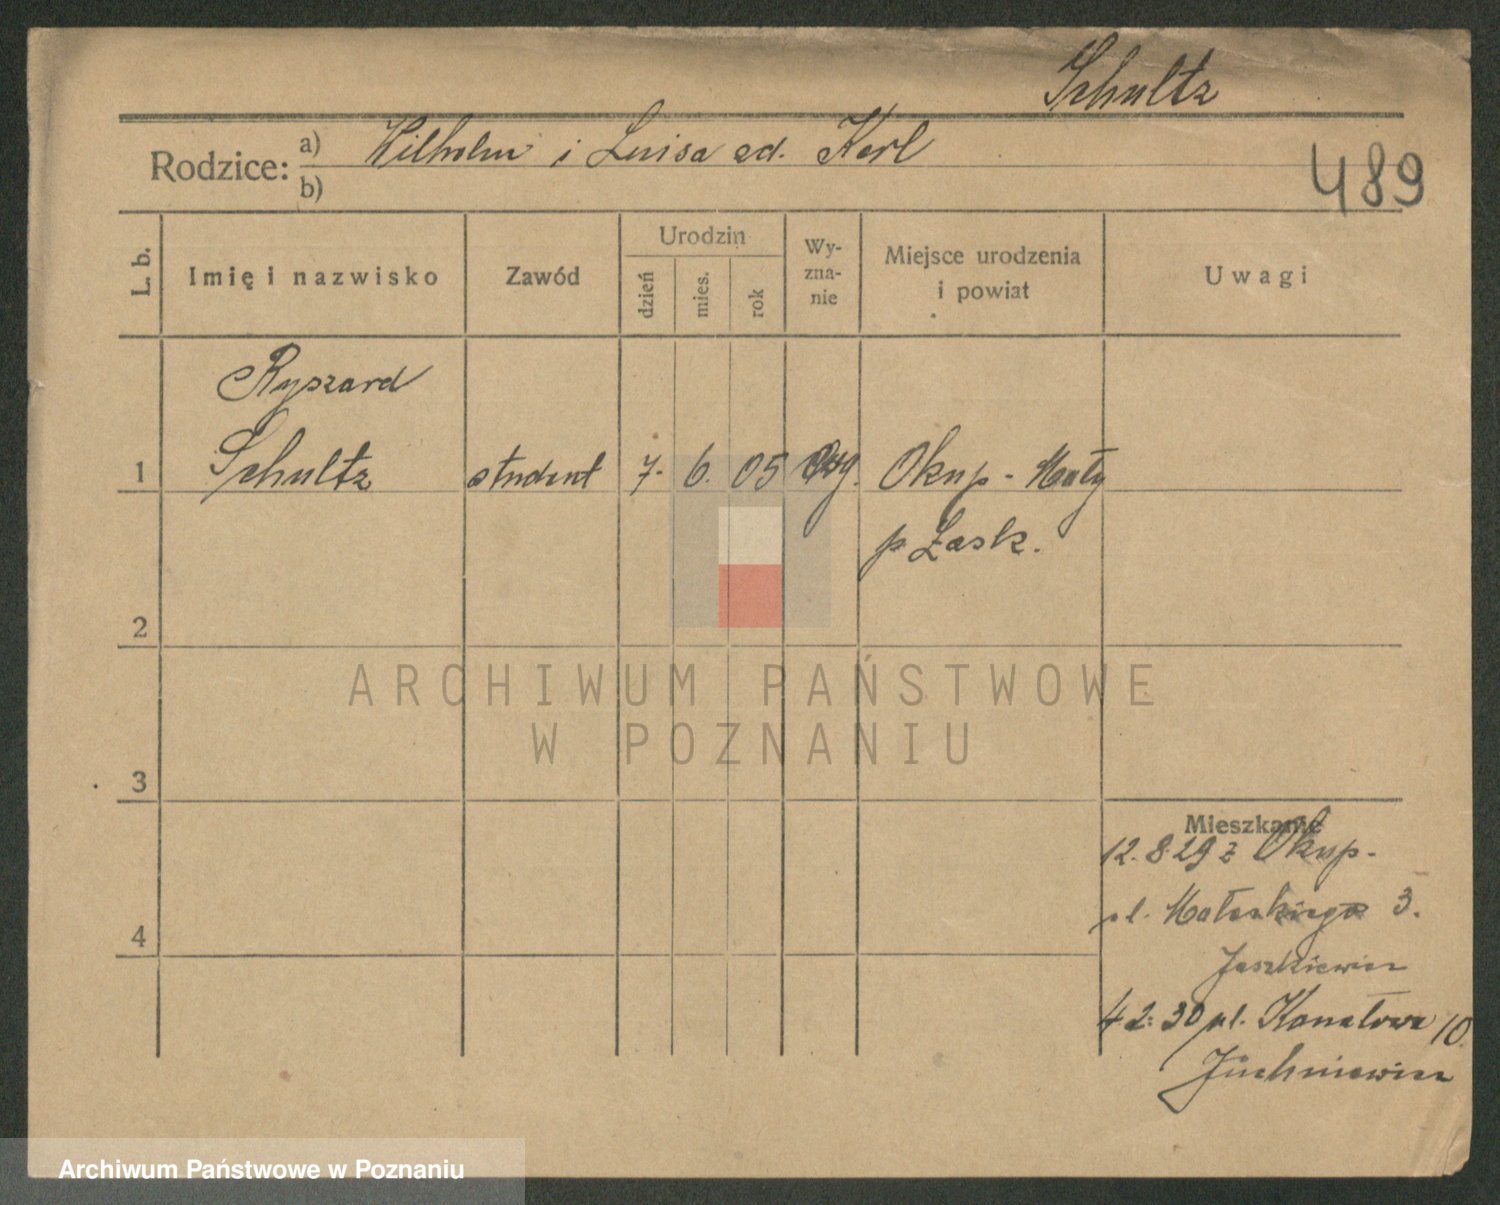 Schultz
Rodzice: a) Wilhelm i Luisa ad. Kerl
b)
489
L. b.
Imię i nazwisko
Zawód
Urodzin
dzień
mies.
rok
Wy-
zna-
nie
Miejsce urodzenia
i powiat
Uwagi
Ryszard
1 Schultz student 7. 6. 05 Okup - Mały
p Łask.
2
3
4
Mieszkanie
12. 8. 29 z Okup.
3.
Jaszkiewicz
4 2. 30 ul. Kanałowa 10
Juchniewicz
ARCHIWUM PAŃSTWOWE
W POZNANIU
Archiwum Państwowe w Poznaniu